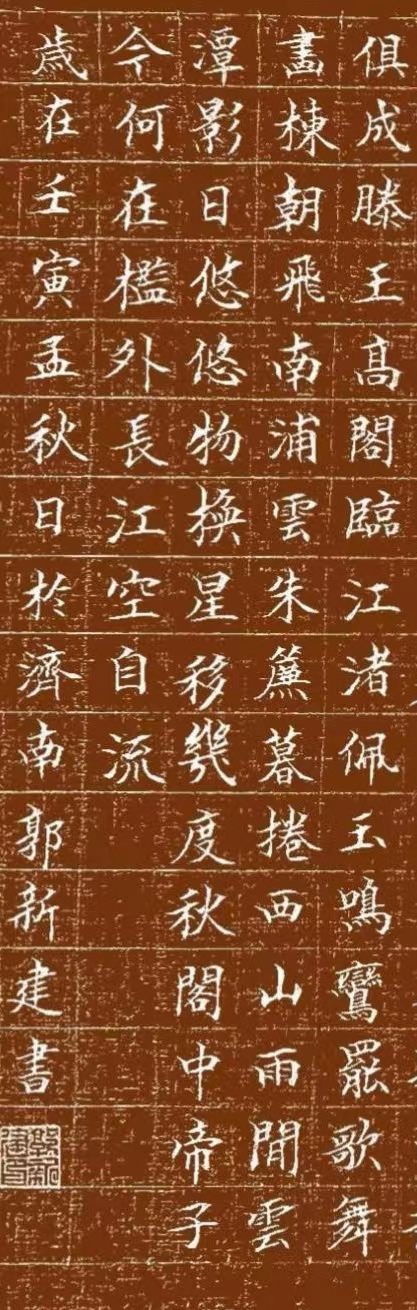 俱成滕王髙閣臨江渚佩玉鳴鸞罷歌舞
畫棟朝飛南浦雲朱簾暮捲西山雨閒雲
潭影日悠悠物換星移幾度秋閣中帝子
今何在檻外長江空自流
歲在壬寅孟秋日於濟南郭新建書